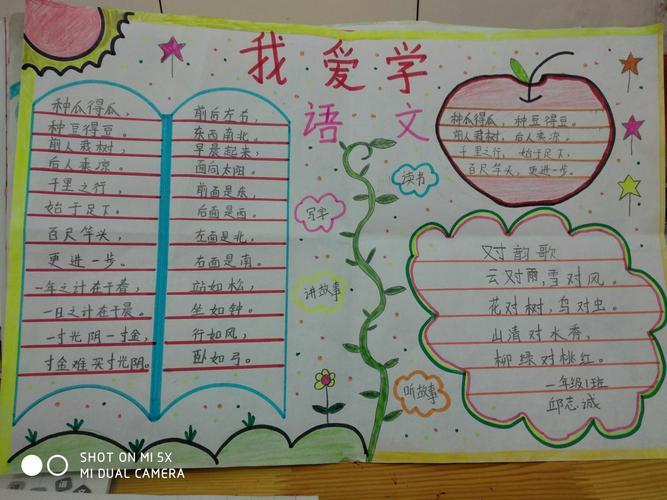 我爱学
语文
种瓜得瓜，
种豆得豆。
前人栽树，
后人乘凉。
千里之行，
始于足下。
百尺竿头，
更进一步。
一年之计在于春，
一日之计在于晨。
一寸光阴一寸金，
寸金难买寸光阴。
前后左右，
东西南北。
早晨起来，
面向太阳。
前面是东，
后面是西。
左面是北，
右面是南。
站如松，
坐如钟。
行如风，
卧如弓。
读书
写字
讲故事
听故事
种瓜得瓜，种豆得豆。
前人栽树，后人乘凉。
千里之行，始于足下。
百尺竿头，更进一步。
对韵歌
云对雨，雪对风。
花对树，鸟对虫。
山清对水秀，
柳绿对桃红。
一年级1班
邱志诚
SHOT ON MI 5X
MI DUAL CAMERA